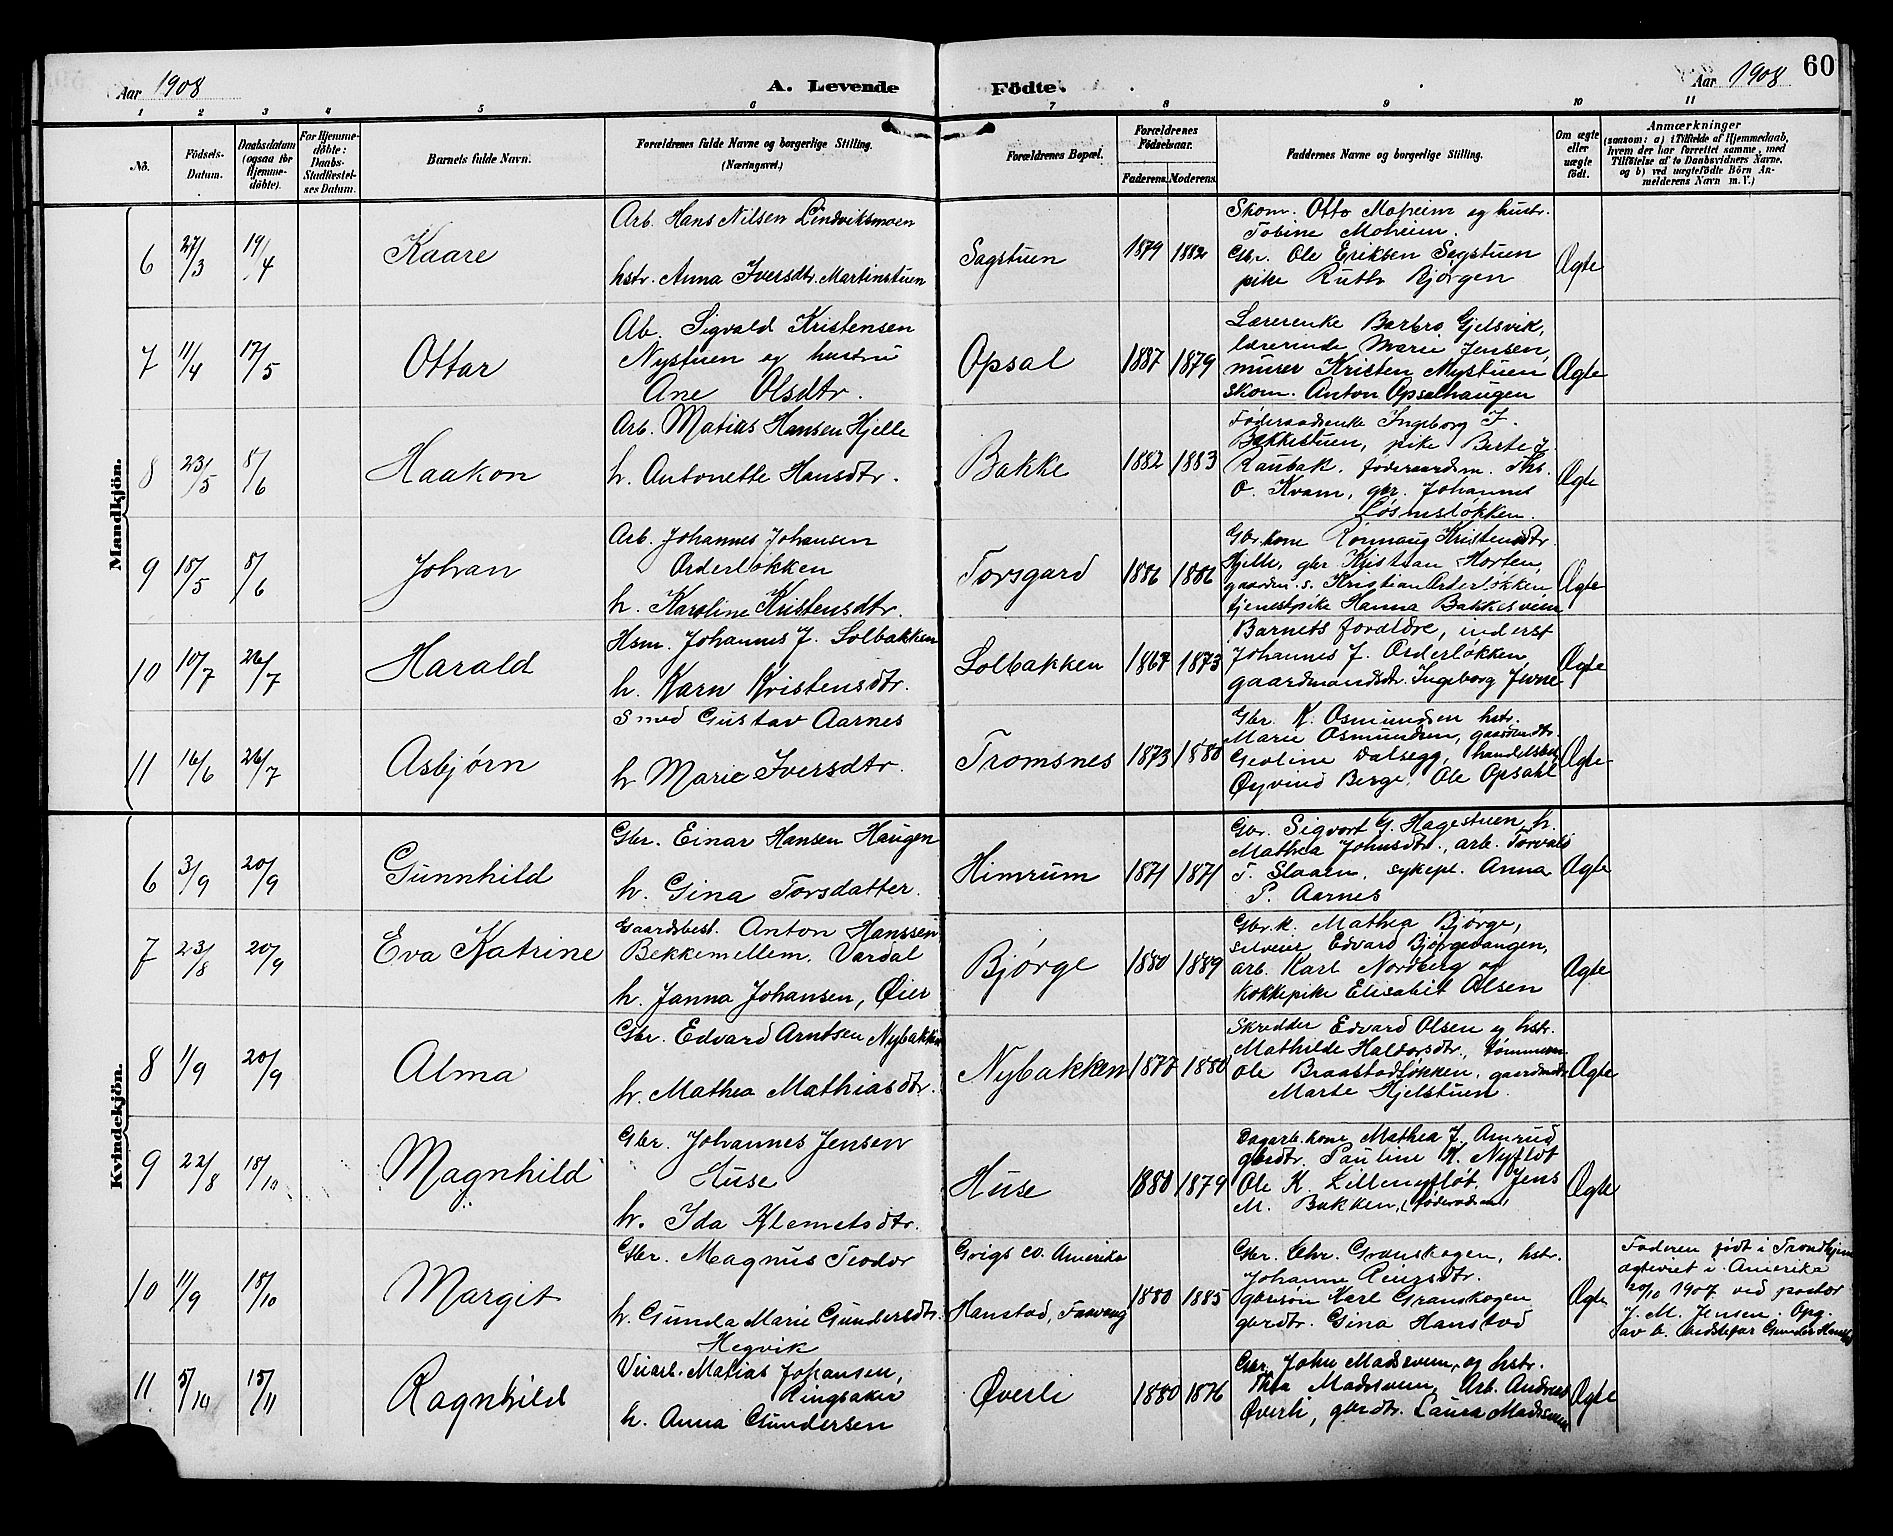 Aar 1908
A. Levende
Födte.
Aar 1908
60
1 2 3 4 5 6 7 8 9 10 11
No.
Födsels-
Datum.
Daabsdatum
(ogsaa for
Hjemme-
döbte).
For Hjemme-
döbte:
Daabs-
Stadfæstel-
ses Datum.
Barnets fulde Navn.
Forældrenes fulde Navne og borgerlige Stilling.
(Næringsvei.)
Forældrenes Bopæl.
Forældrenes
Födselsaar.
Faderens. Moderens.
Faddernes Navne og borgerlige Stilling.
Om ægte
eller
uægte
födt.
Anmærkninger
(saasom: a) i Tilfælde af Hjemmedaab,
hvem der har forrettet samme, med
Tilföielse af to Daabsvidners Navne,
og b) ved uægtefödte Börn An-
melderens Navn m. V.)
Mandkjön.
6 27/3 19/4 Kaare
Arb. Hans Nilsen Lindviksmoen
hstr. Anna Iversdtr. Martinstuen
Sagstuen 1879 1882
Skom. Otto Moheim og hustr.
Tobine Moheim.
Gbr. Ole Eriksen Sagstuen
pike Ruth Bjørgen
Ægte
7 11/4 17/5 Ottar
Ab. Sigvald Kristensen
Nystuen og hustru
Ane Olsdtr.
Opsal 1887 1879
Lærerenke Barbro Gjelsvik,
lærerinde Marie Jensen,
murer Kristen Nystuen
skom. Anton Opsalhaugen
Ægte
8 23/5 8/6 Haakon
Arb. Matias Hansen Hjelle
h. Antonette Hansdtr.
Bakke 1882 1883
Føderaadsenke Ingeborg J.
Bakkestuen, pike Berte J.
Raubak, føderaadsm. Ths.
O. Kvam, gbr. Johannes
Løsmsløkken.
Ægte
9 18/5 8/6 Johan
Arb. Johannes Johansen
Orderløkken
h. Karoline Kristensdtr.
Torsgard 1886 1886
Gbr. kone Rønnaug Kristensdtr.
Hjelle, gbr Kristian Horten,
gaardm. s. Kristian Orderløkken
tjenestpike Hanna Bakkesveen
Ægte
10 10/7 26/7 Harald
Hsm. Johannes J. Solbakken
h. Karn Kristensdtr.
Solbakken 1867 1873
Barnets forældre, inderst
Johannes J. Orderløkken
gaardmandsdtr. Ingeborg Jevne
Ægte
11 16/6 26/7 Asbjørn
Smed Gustav Aarnes
h Marie Iversdtr.
Tromsnes 1873 1880
Gbr. K. Osmundsen hstr.
Marie Osmundsen, gaardmdtr.
Geoline Dalsegg, handelsbet.
Øyvind Berge, Ole Opsahl
Ægte
Kvindekjön.
6 3/9 20/9 Gunnhild
Gbr. Einar Hansen Haugen
h. Gina Torsdatter.
Himrum 1871 1871
Gbr. Sigvort G. Hagestuen h.
Mathea Johnsdtr., arb. Torvald
T. Slaaen, sykepl. Anna
P. Aarnes
Ægte
7 23/8 20/9 Eva Katrine
Gaardsbest. Anton Hanssen
Bekkemellem. Vardal
h. Janna Johansen, Øier
Bjørge 1880 1889
Gbr. k. Mathea Bjørge,
selveier Edvard Bjørgevangen,
arb. Karl Nordberg og
kokkepike Elisabet Olsen
Ægte
8 1/9 20/9 Alma
Gbr. Edvard Arntsen Nybakken
h. Mathea Mathiasdtr.
Nybakken 1877 1880
Skredder Edvard Olsen og hstr.
Mathilde Haldorsdtr., tømmerm.
Ole Braastadløkken, gaardmdtr.
Marte Hjelstuen.
Ægte
9 22/8 18/10 Magnhild
Gbr. Johannes Jensen
Huse
h. Ida Klemetsdtr.
Huse 1880 1879
Dagarb. kone Mathea J. Amrud
gbrdtr. Pauline K. Nyfløt
Ole K. Lillenyfløt, Jens
M. Bakken,
Ægte
10 11/9 18/10 Margit
Gbr. Magnus Teodor
h. Gunda Marie Gundersdtr.
Hegvik
Grigs co. Amerika
Hanstad, Faavang
1880 1885
Gbr. Chr. Granskogen, hstr.
Johanne Ringsdtr.
gbrsøn Karl Granskogen
gbrdtr. Gina Hanstad
Ægte
Faderen født i Trondhjem
ægteviet i Amerika
20/10 1907 ved pastor
J. M. Jensen. Opg.
av b. bedstefar Gunder Hanstad
11 5/10 15/11 Ragnhild
Veiarb. Matias Johansen,
Ringbaker
h. Anna Gundersen
Øverli 1880 1876
Gbr. John Madsveen og hstr.
Thea Madsveen, Arb. Andreas
Øverli, gbrdtr. Laura Madsveen
Ægte